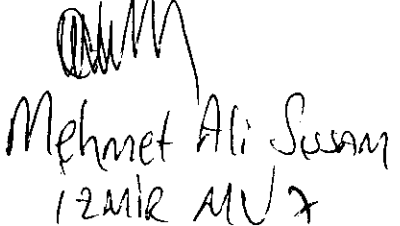 Mehmet Ali Susam
İZMİR MV